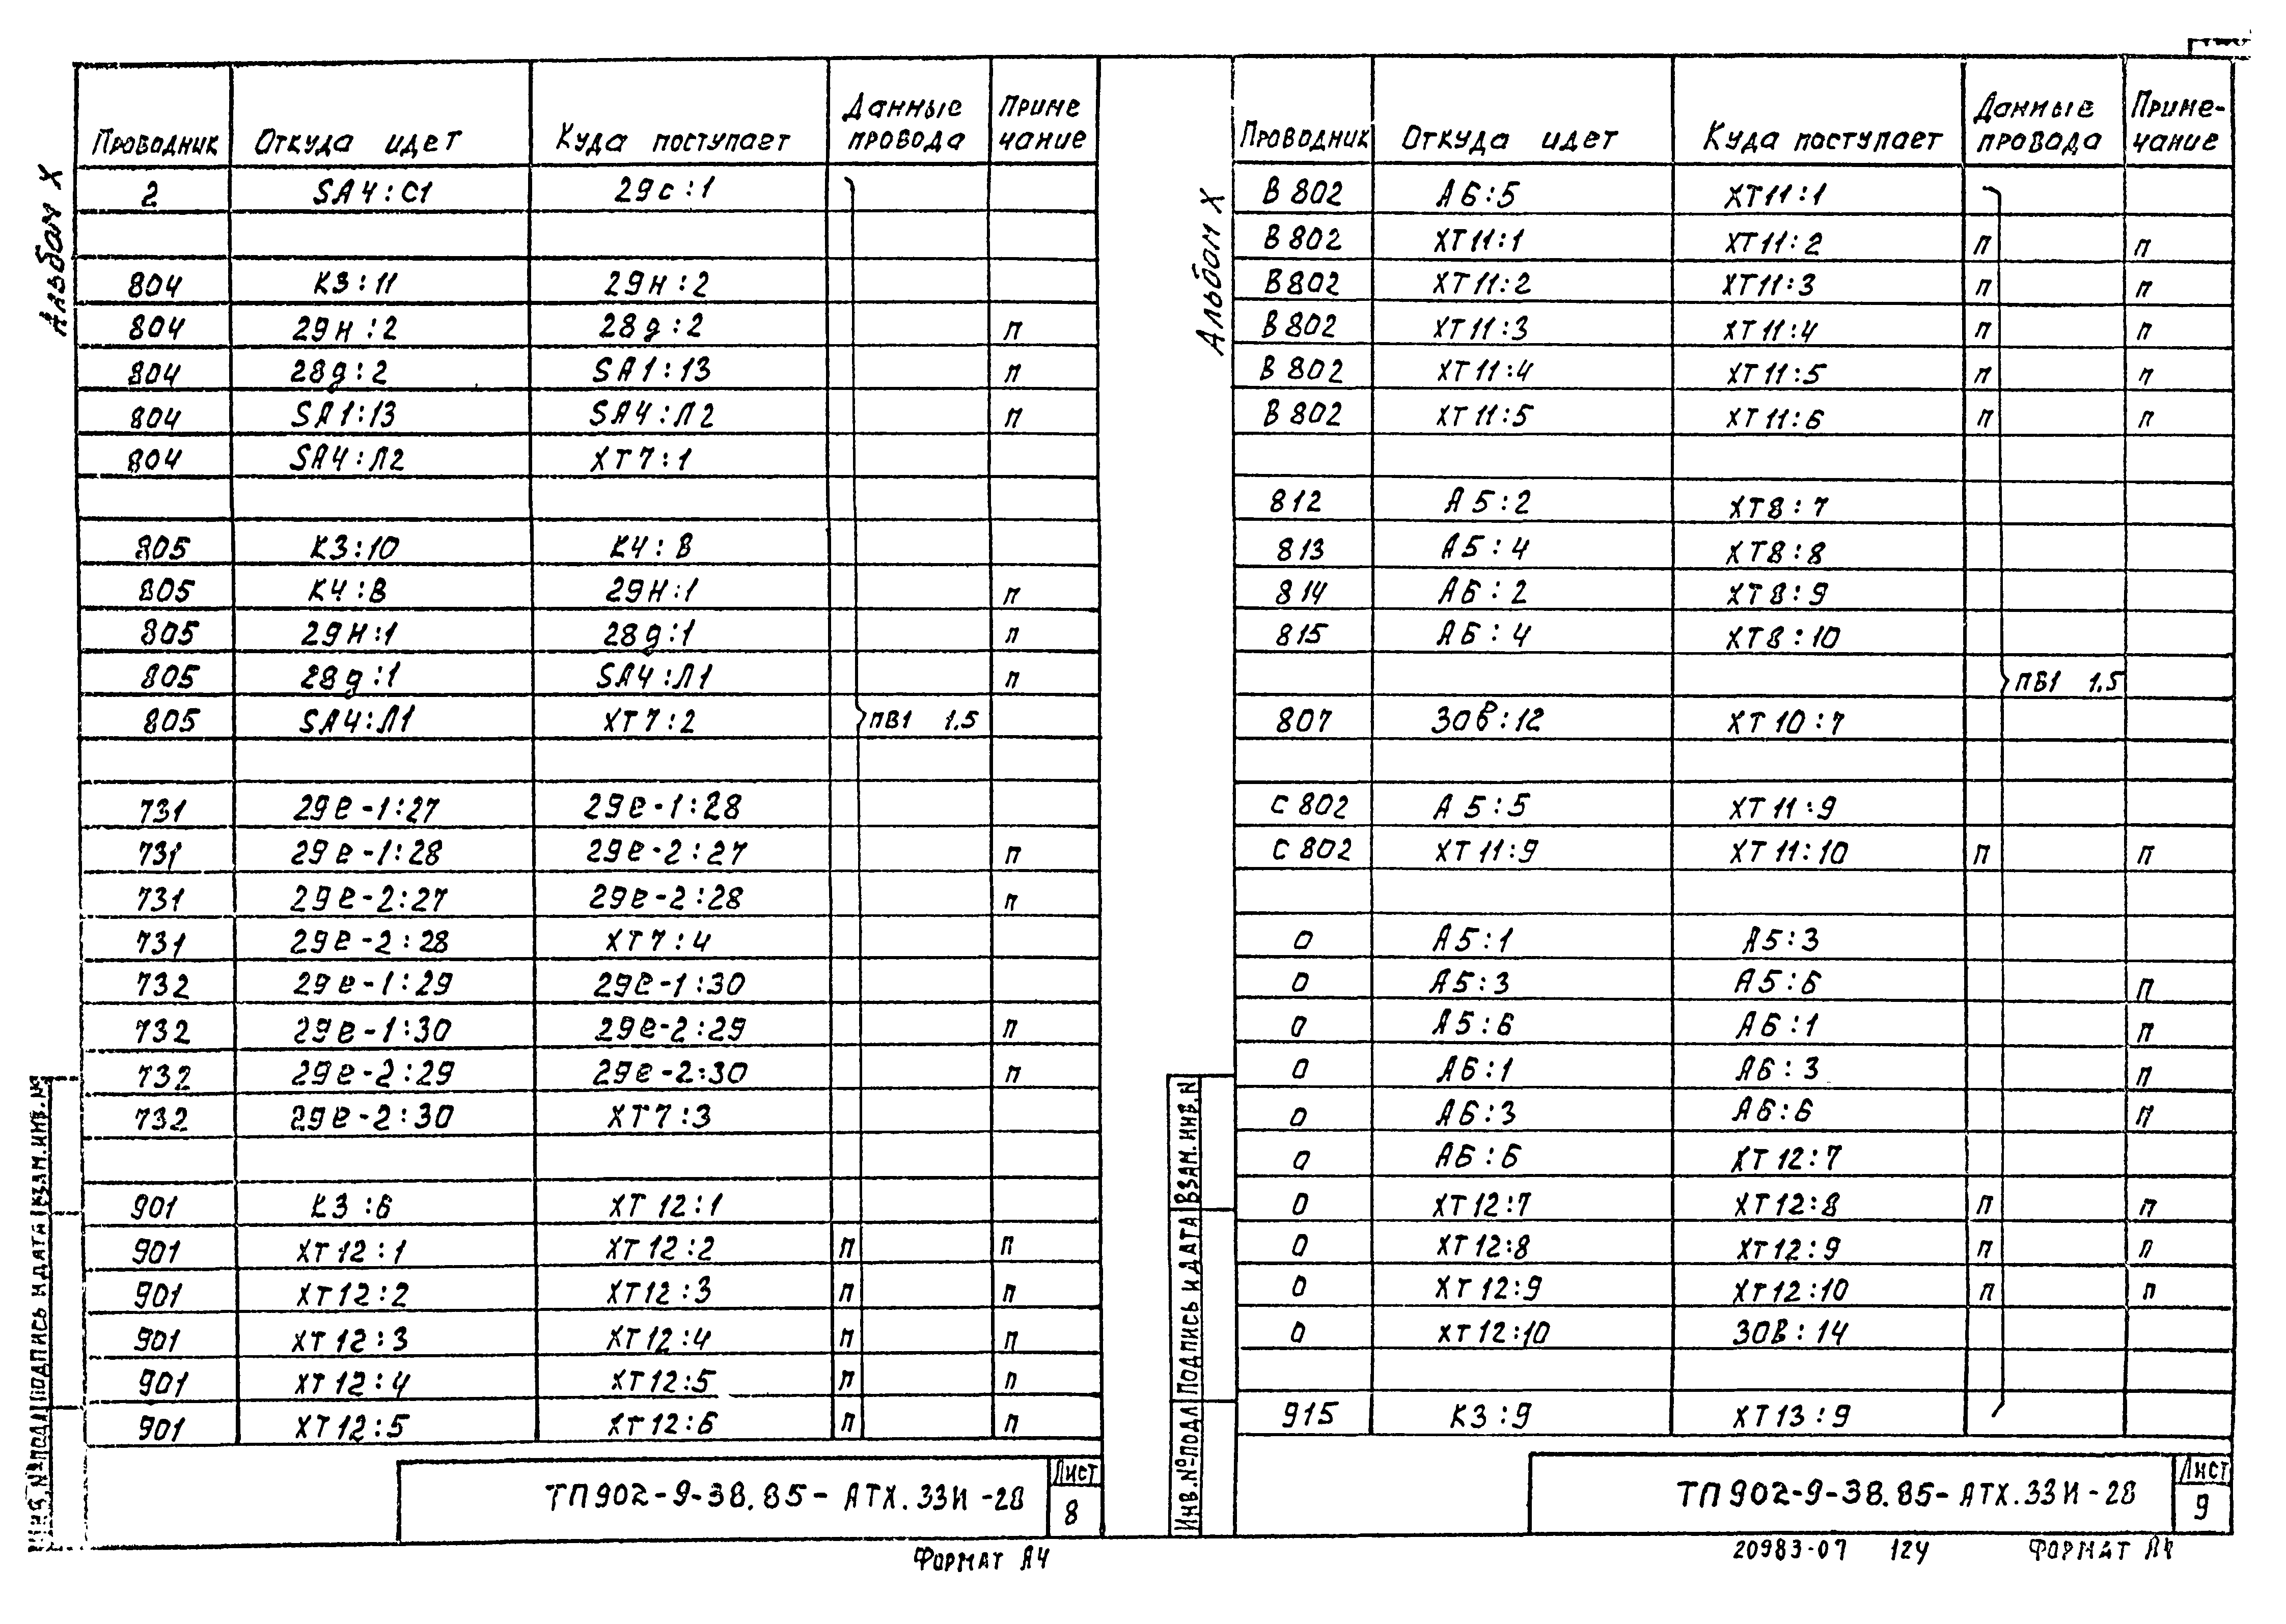 Альбом X
Проводник Откуда идет Куда поступает Данные провода Приме чание
2 SA4:C1 29с:1
804 К3:11 29н:2
804 29н:2 28д:2 п
804 28д:2 SA1:13 п
804 SA1:13 SA4:Л2 п
804 SA4:Л2 XT7:1
805 К3:10 К4:В
805 К4:В 29н:1 п
805 29н:1 28д:1 п
805 28д:1 SA4:Л1 п
805 SA4:Л1 XT7:2 ПВ1 1.5
731 29е-1:27 29е-1:28
731 29е-1:28 29е-2:27 п
731 29е-2:27 29е-2:28 п
731 29е-2:28 XT7:4
732 29е-1:29 29е-1:30
732 29е-1:30 29е-2:29 п
732 29е-2:29 29е-2:30 п
732 29е-2:30 XT7:3
901 К3:6 XT12:1
901 XT12:1 XT12:2 п п
901 XT12:2 XT12:3 п п
901 XT12:3 XT12:4 п п
901 XT12:4 XT12:5 п п
901 XT12:5 XT12:6 п п
Инв.№подл Подпись и дата Взам.инв.№
ТП902-9-38.85-АТХ.33И-28
Лист
8
Формат А4
Альбом X
Проводник Откуда идет Куда поступает Данные провода Приме-чание
В802 А6:5 XT11:1
В802 XT11:1 XT11:2 п п
В802 XT11:2 XT11:3 п п
В802 XT11:3 XT11:4 п п
В802 XT11:4 XT11:5 п п
В802 XT11:5 XT11:6 п п
812 А5:2 XT8:7
813 А5:4 XT8:8
814 А6:2 XT8:9
815 А6:4 XT8:10
ПВ1 1.5
807 30в:12 XT10:7
С802 А5:5 XT11:9
С802 XT11:9 XT11:10 п п
0 А5:1 А5:3
0 А5:3 А5:6 п
0 А5:6 А6:1 п
0 А6:1 А6:3 п
0 А6:3 А6:6 п
0 А6:6 XT12:7
0 XT12:7 XT12:8 п п
0 XT12:8 XT12:9 п п
0 XT12:9 XT12:10 п п
0 XT12:10 30В:14
915 К3:9 XT13:9
Инв.№подл Подпись и дата Взам.инв.N
ТП902-9-38.85-АТХ.33И-28
Лист
9
20983-07 124 Формат А4